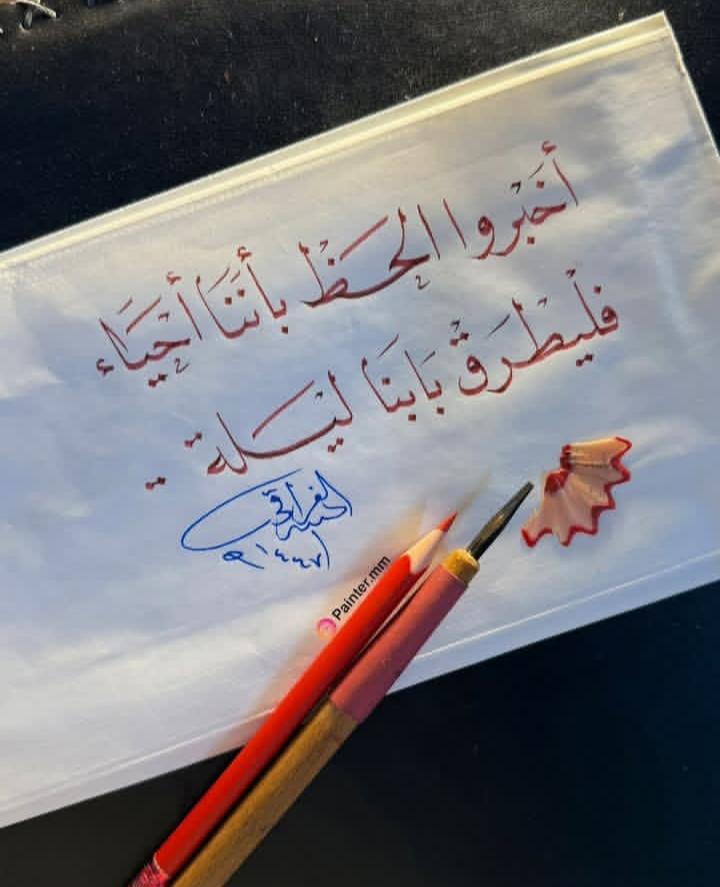 أخبروا الحَظّ بأنَنَا أحيَاء
فلْيطرَقْ بَابنَا ليْـَلة ..
١٤٤٧هـ
Painter.mm